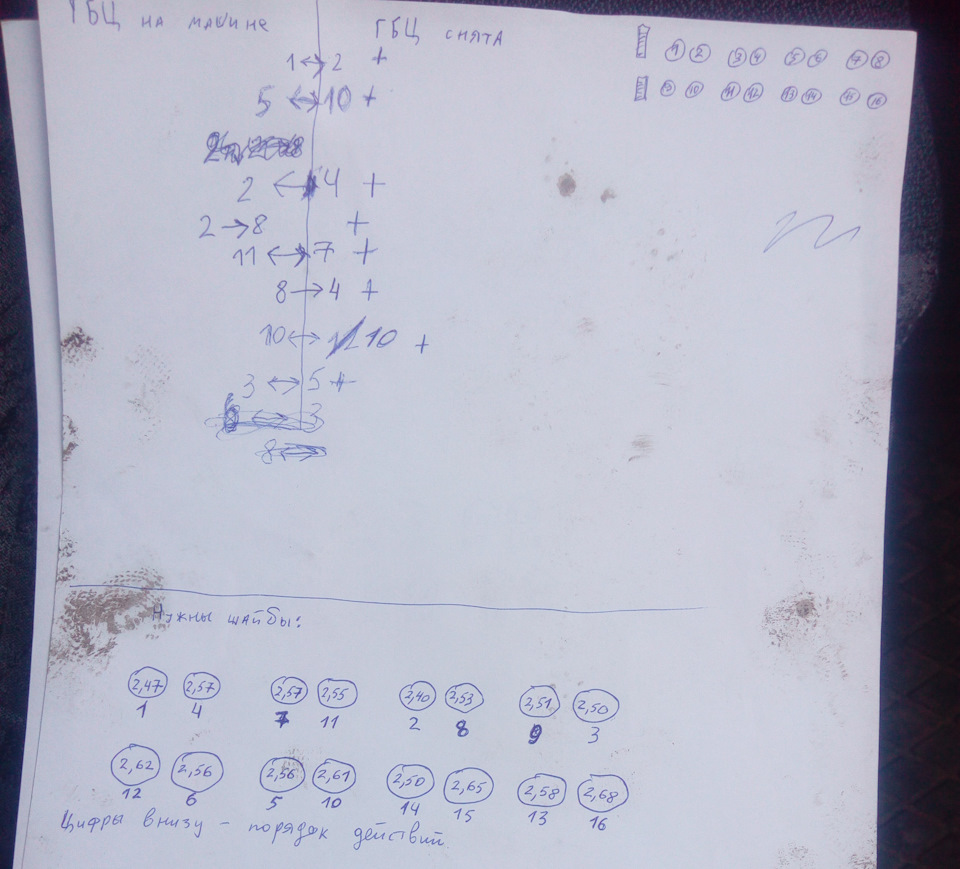 ГБЦ на машине ГБЦ снята
1 2 3 4 5 6 7 8
9 10 11 12 13 14 15 16
1 ↔ 2 +
5 ↔ 10 +
2 ↔ 4 +
2 → 8 +
11 ↔ 7 +
8 → 4 +
10 ↔ 10 +
3 ↔ 5 +
3
8 ↔
Нужны шайбы:
2,47 2,57 2,57 2,55 2,40 2,53 2,51 2,50
1 4 7 11 2 8 9 3
2,62 2,56 2,56 2,61 2,50 2,65 2,58 2,68
12 6 5 10 14 15 13 16
Цифры внизу - порядок действий.